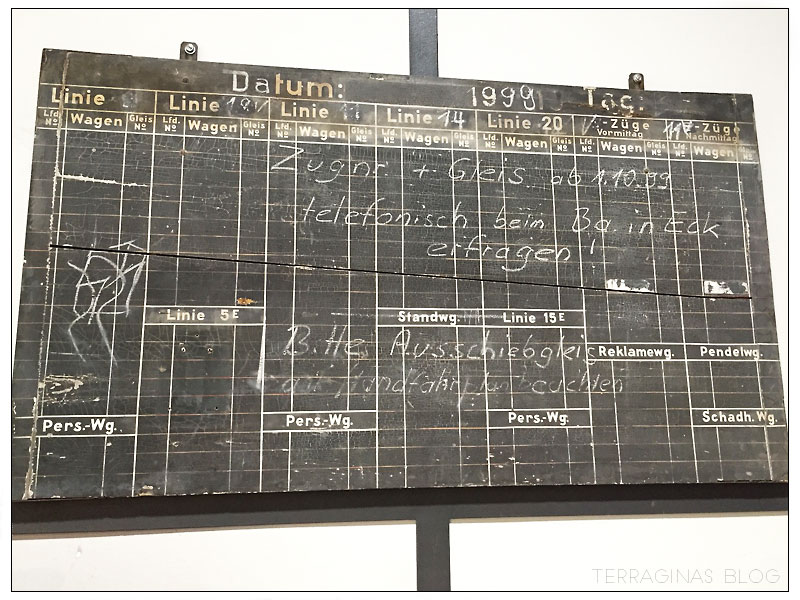 Datum: 1999 Tag:
Linie Linie 19 Linie Linie 14 Linie 20 V.-Züge Vormittag -Züge Nachmittag
Lfd. Nº Wagen Gleis Nº Lfd. Nº Wagen Gleis Nº Lfd. Nº Wagen Gleis Nº Lfd. Nº Wagen Gleis Nº Lfd. Nº Wagen Gleis Nº Lfd. Nº Wagen Gleis Nº Lfd. Nº Wagen
Zugnr. + Gleis ab 1.10.99
telefonisch beim Ba. in Eck
erfragen!
Linie 5E Standwg. Linie 15E
Bitte Ausschiebgleis
Reklamewg. Pendelwg.
Handfahrplan
Pers.-Wg. Pers.-Wg. Pers.-Wg. Schadh. Wg.
TERRAGINAS BLOG